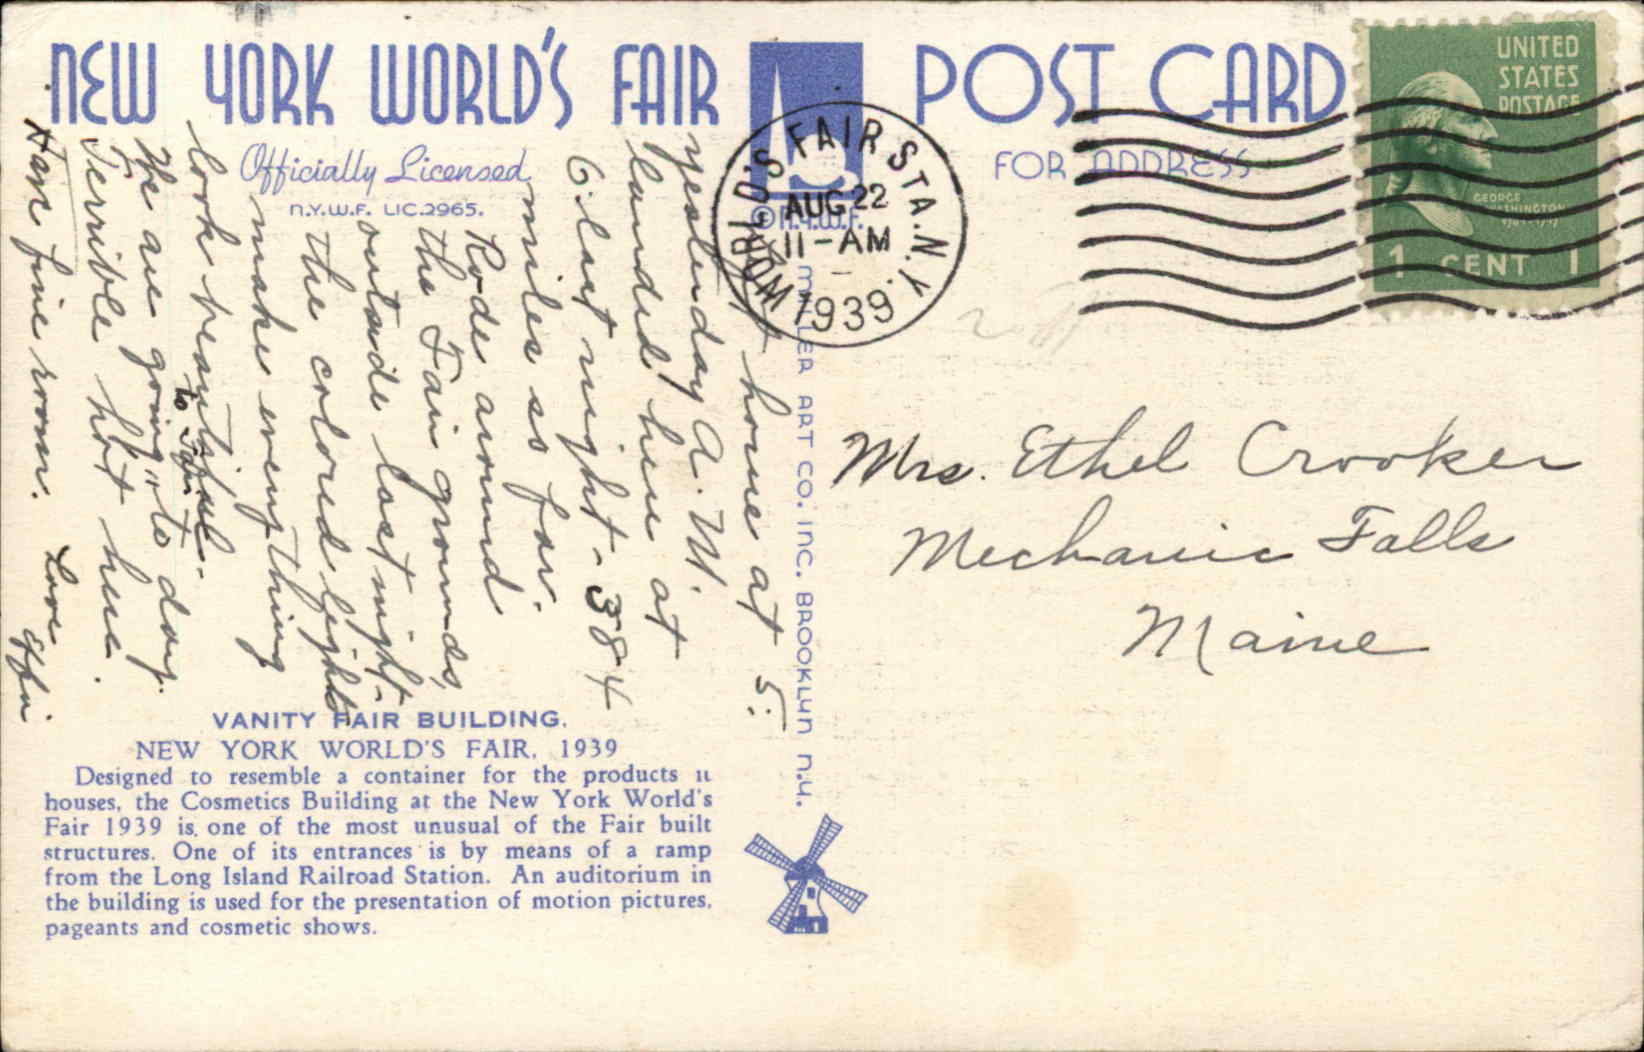 NEW YORK WORLD'S FAIR
Officially Licensed
N.Y.W.F. LIC.2965.
POST CARD
FOR ADDRESS
© N.Y.W.F.
WORLD'S FAIR STA. N.Y.
AUG 22
11-AM
1939
UNITED
STATES
POSTAGE
GEORGE
WASHINGTON
1 CENT 1
home at 5:
yesterday A.M.
landed here at
6: last night - 384
miles so far.
Rode around
the Fair grounds,
outside last night.
The colored lights
make everything
look beautiful.
We are going to Fair to day.
Terrible hot here.
Have fine room. Love
Effie
Mrs. Ethel Crooker
Mechanic Falls
Maine
MILLER ART CO. INC. BROOKLYN N.Y.
VANITY FAIR BUILDING.
NEW YORK WORLD'S FAIR, 1939
Designed to resemble a container for the products it
houses, the Cosmetics Building at the New York World's
Fair 1939 is, one of the most unusual of the Fair built
structures. One of its entrances is by means of a ramp
from the Long Island Railroad Station. An auditorium in
the building is used for the presentation of motion pictures,
pageants and cosmetic shows.